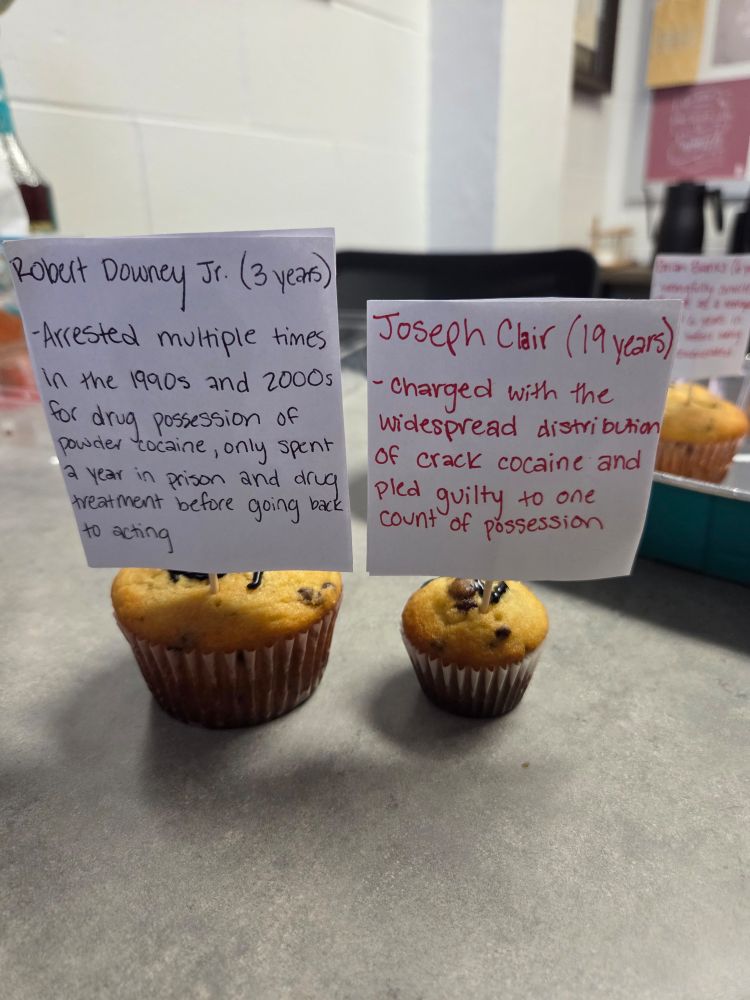 Robert Downey Jr. (3 years)
-Arrested multiple times
in the 1990s and 2000s
for drug possession of
powder cocaine, only spent
a year in prison and drug
treatment before going back
to acting
Joseph Clair (19 years)
- charged with the
widespread distribution
of crack cocaine and
pled guilty to one
count of possession
Brian Banks